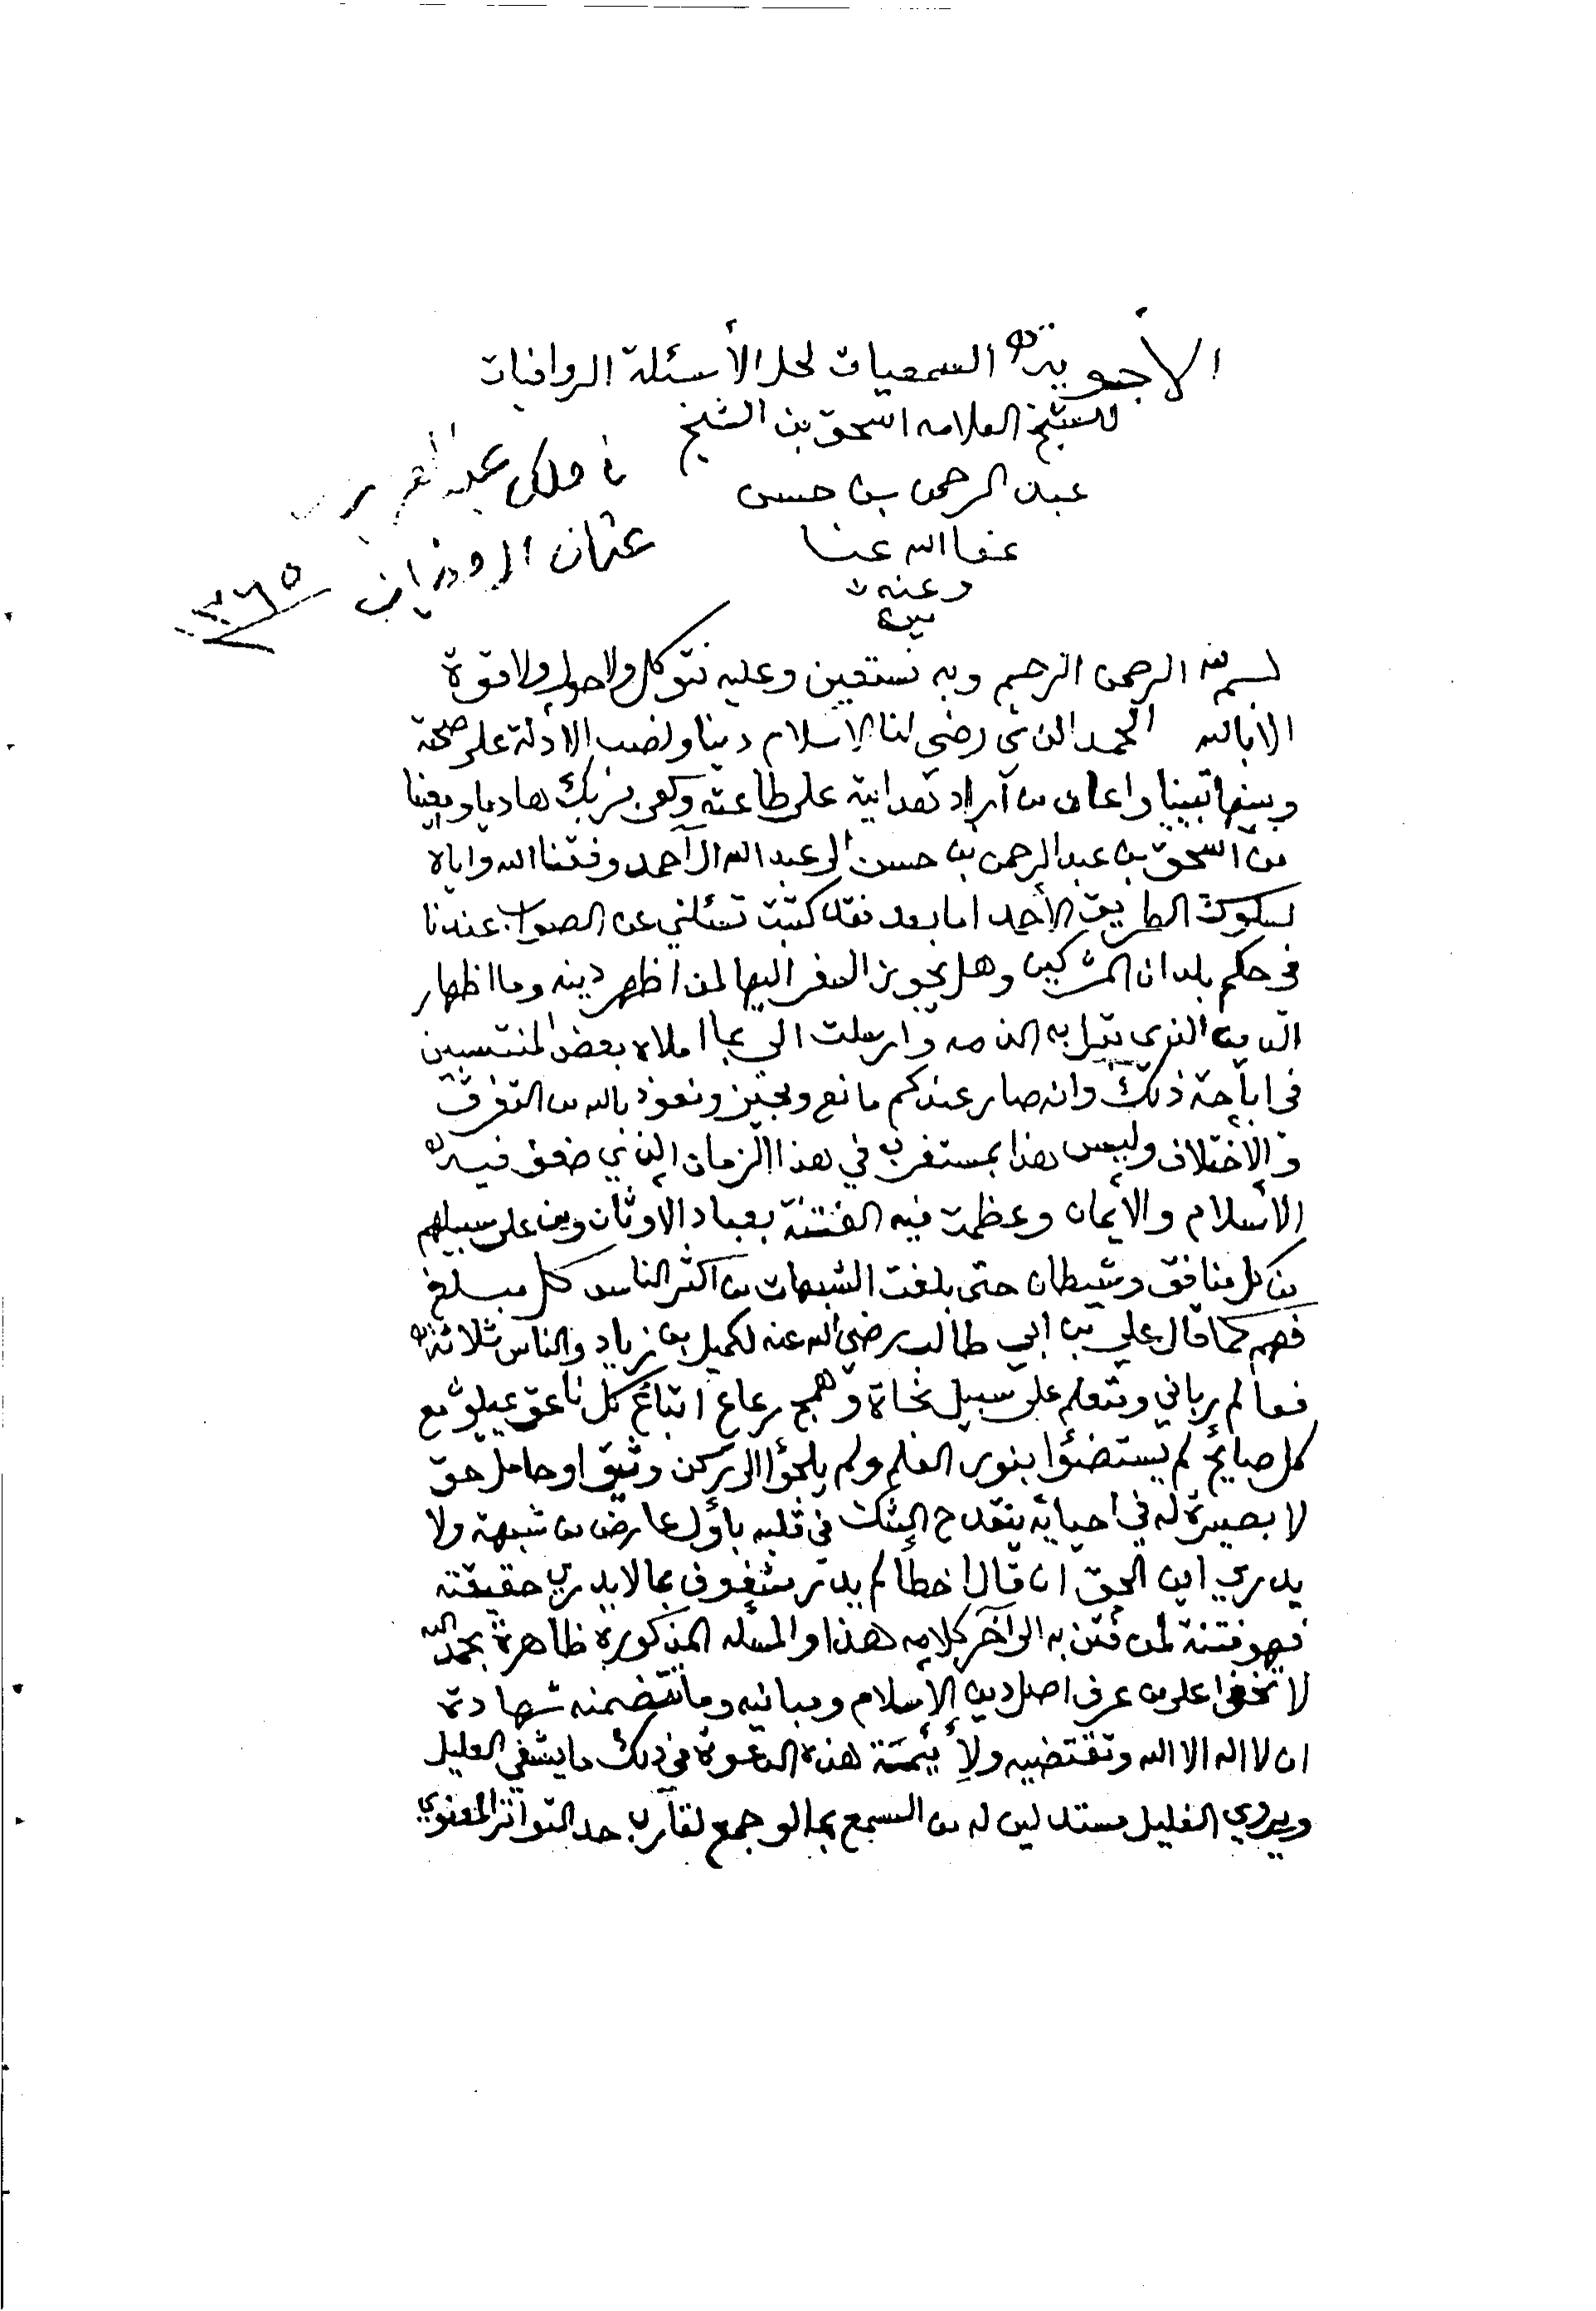 الأجوبة السمعيات لحل الأسئلة الروافيات
للشيخ العلامه اسحق بن الشيخ
عبد الرحمن بن حسن
عفا الله عنا
وعنه
امين
في ملك عبد العزيز
عثمان
١٣٦٥
بسم الله الرحمن الرحيم وبه نستعين وعليه نتوكل ولا حول ولا قوة
الا بالله الحمد الذي رضي لنا الإسلام دينا ونصب الادلة على صحته
وبينها تبيينا واعان من اراد هدايته على طاعته وكفى بربك هاديا ومعينا
من اسحق بن عبد الرحمن بن حسن الى عبد الله ال احمد وفقنا الله واياه
لسلوك الطريق الأحمد اما بعد فقد كتبت تسئلني عن الصواب عندنا
في حكم بلدان المشركين وهل يجوز السفر اليها لمن اظهر دينه وما اظهار
الدين الذي تبرا به الذمه وارسلت الي بما املاه بعض المنتسبين
في اباحة ذلك وانه صار عندكم مانع ومجيز ونعوذ بالله من التفرق
والإختلاف وليس هذا بمستغرب في هذا الزمان الذي ضعف فيه
الأسلام والأيمان وعظمت فيه الفتنة بعباد الاوثان ومن على سبيلهم
من كل منافق وشيطان حتى بلغت الشبهات من اكثر الناس كل مبلغ
فهم كما قال علي بن ابي طالب رضي الله عنه لكميل بن زياد والناس ثلاثة
فعالم رباني ومتعلم على سبيل نجاة وهمج رعاع اتباع كل ناعق يميلو مع
كل صايح لم يستضئوا بنور العلم ولم يلجؤا الى ركن وثيق او حامل حق
لا بصيرة له في احيائه ينقدح الشك في قلبه بأول عارض من شبهة ولا
يدري اين الحق ان قال اخطأ لم يدر مشغوف بمالا يدري حقيقته
فهو فتنة لمن فتن به الى آخر كلامه هذا والمسئله المذكوره ظاهرة بحمد الله
لا تخفى على من عرف اصل دين الإسلام ومبانيه وما تتضمنه شهادة
ان لا اله الا الله وتقتضيه ولأيمة هذه الدعوة في ذلك ما يشفي العليل
ويروي الغليل مستدلين له من السمع بما لو جمع لقارب حد التواتر المعنوي